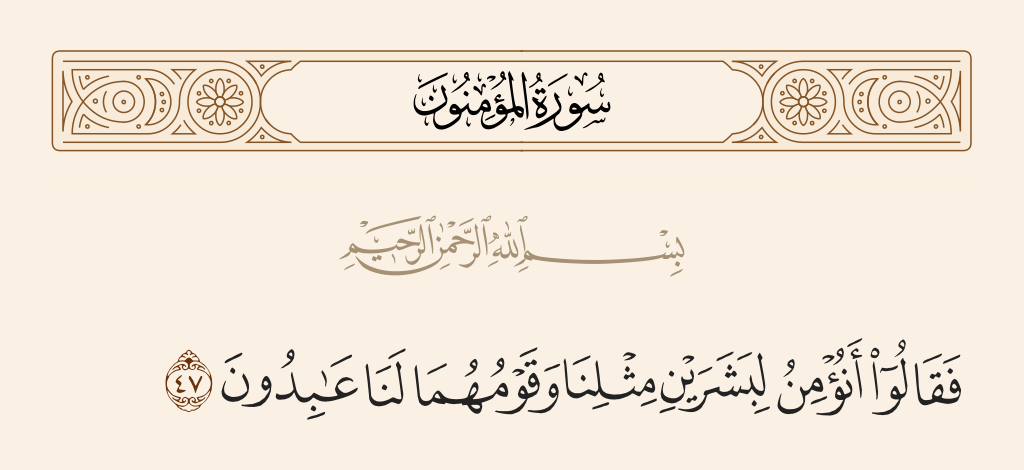 سُورَةُ الْمُؤْمِنُونَ
بِسْمِ ٱللَّهِ ٱلرَّحْمَٰنِ ٱلرَّحِيمِ
فَقَالُوٓا۟ أَنُؤْمِنُ لِبَشَرَيْنِ مِثْلِنَا وَقَوْمُهُمَا لَنَا عَٰبِدُونَ ٤٧